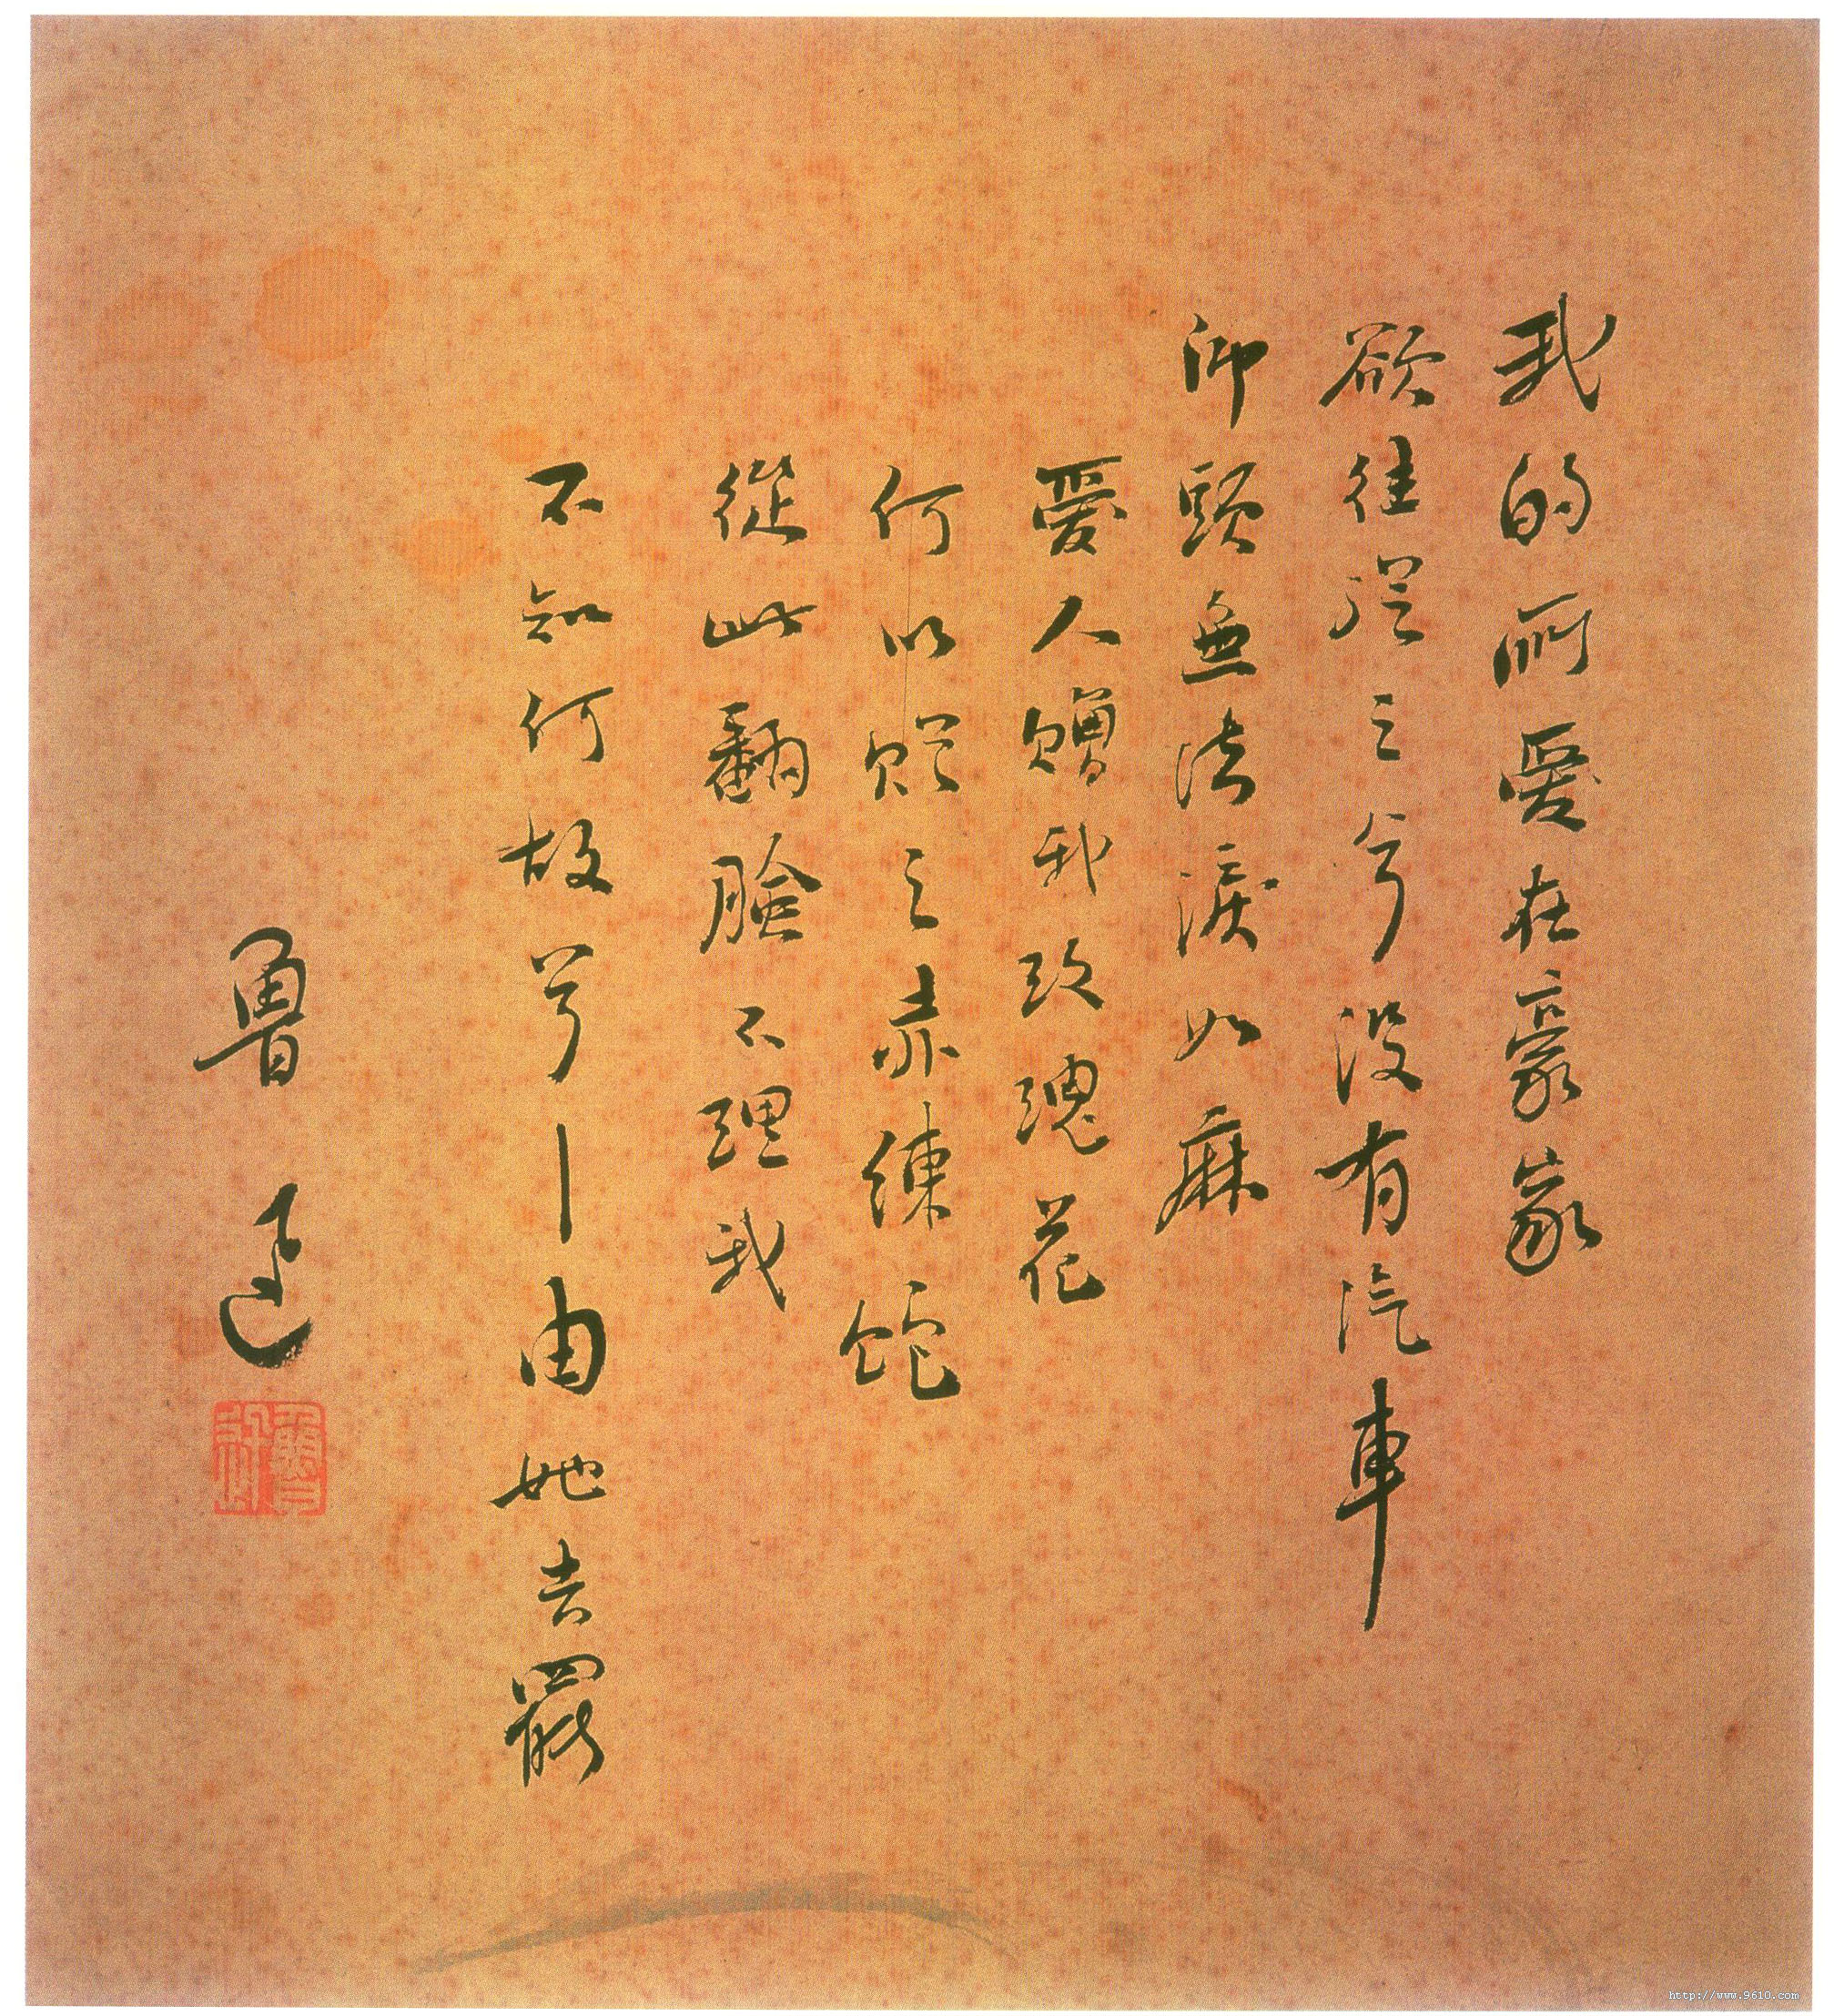 我的所愛在豪家
欲往從之兮没有汽車
仰頭無法淚如麻
愛人贈我玫瑰花
何以贈之赤練蛇
從此翻臉不理我
不知何故兮—由她去罷
魯迅
http://www.9610.com